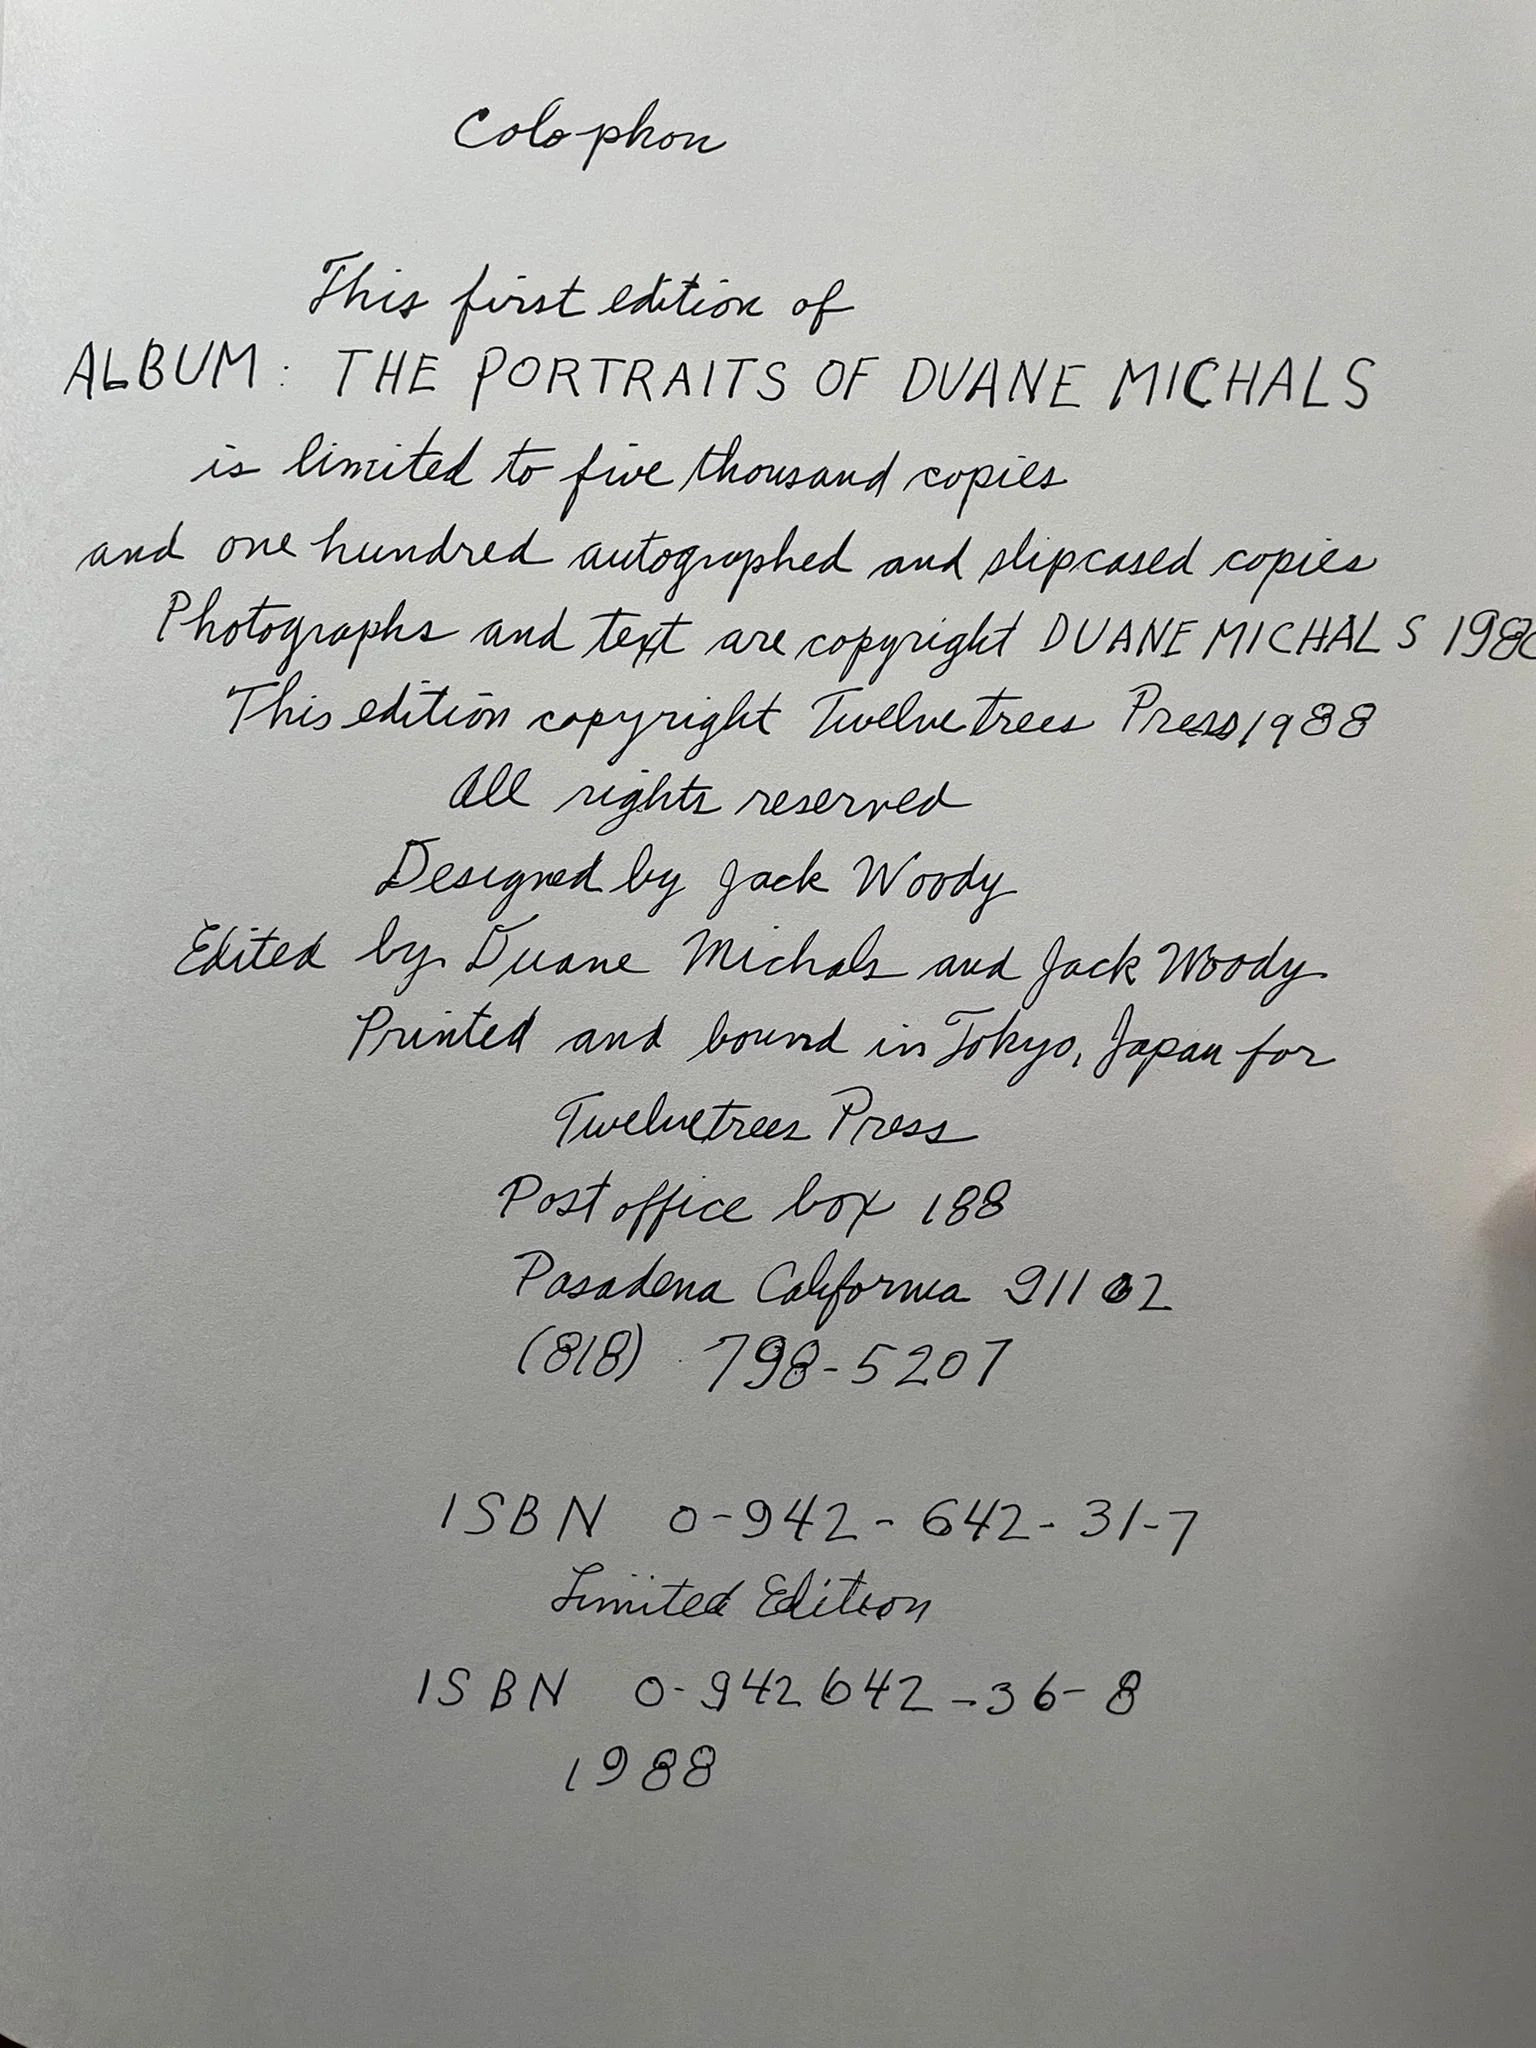 Colophon
This first edition of
ALBUM: THE PORTRAITS OF DUANE MICHALS
is limited to five thousand copies
and one hundred autographed and slipcased copies
Photographs and text are copyright DUANE MICHALS
This edition copyright Twelvetrees Press 1988
All rights reserved
Designed by Jack Woody
Edited by Duane Michals and Jack Woody
Printed and bound in Tokyo, Japan for
Twelvetrees Press
Post office box 188
Pasadena California 91102
(818) 798-5207
ISBN 0-942-642-31-7
Limited Edition
ISBN 0-942642-36-8
1988